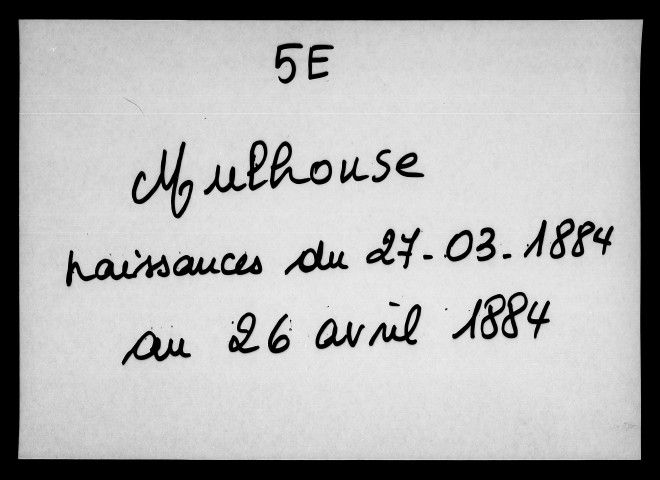 5E
Mulhouse
naissances du 27-03-1884
au 26 avril 1884